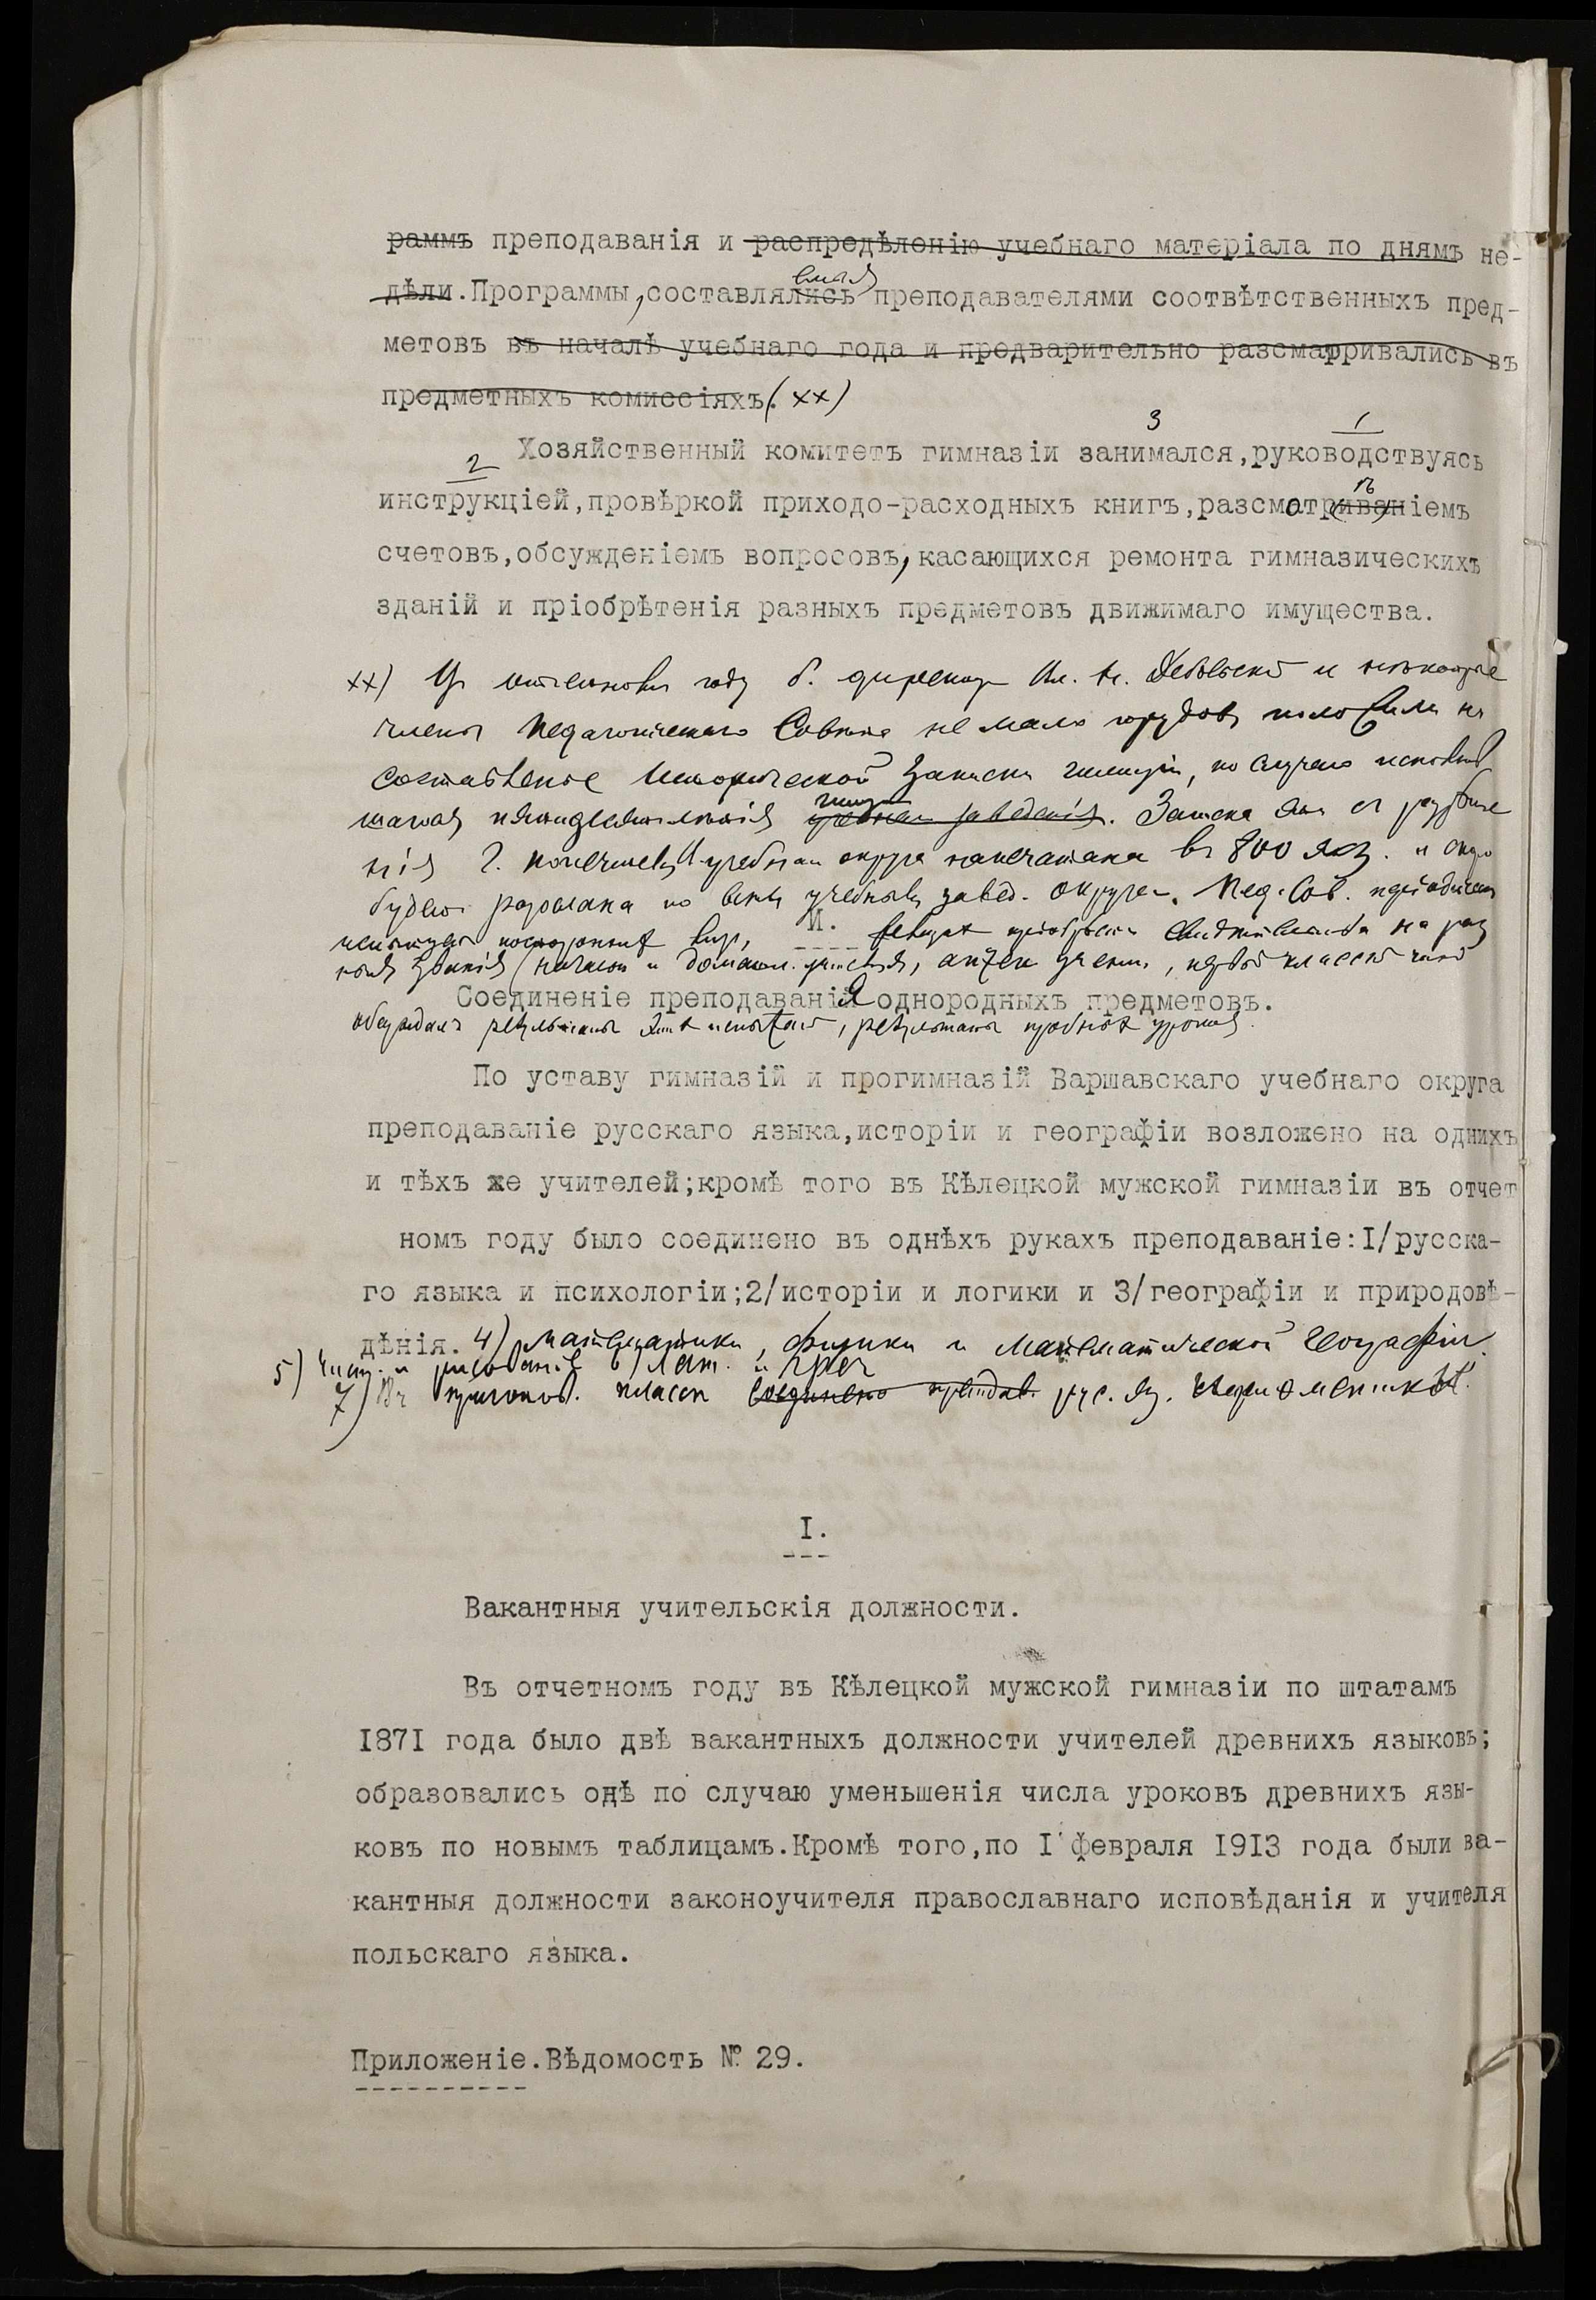 раммъ преподаванія и распредѣленію учебнаго матеріала по днямъ не-
дѣли. Программы, составлялись преподавателями соотвѣтственныхъ пред-
метовъ въ началѣ учебнаго года и предварительно разсматривались въ
предметныхъ комиссіяхъ. (xx)
3 1
Хозяйственный комитетъ гимназіи занимался, руководствуясь
2
инструкціей, провѣркой приходо-расходныхъ книгъ, разсматриваніемъ
счетовъ, обсужденіемъ вопросовъ, касающихся ремонта гимназическихъ
зданій и пріобрѣтенія разныхъ предметовъ движимаго имущества.
xx) году б. директ и нѣкоторые
члены Педагогическаго Совѣта не мало трудовъ положили на
составленіе Исторической Записки гимназіи, по случаю
учебнаго заведенія. Записка эта съ разрѣше
нія Г. Попечителя учебнаго округа напечатана въ 800 экз. и скоро
будетъ разослана по всѣмъ учебнымъ завед. округа. Пед. Сов.
И.
званія (начальн. и домашн. , аптек. учен., первый классный чинъ
Соединеніе преподаванія однородныхъ предметовъ.
обсуждалъ результаты , результаты пробныхъ уроковъ.
По уставу гимназій и прогимназій Варшавскаго учебнаго округа
преподаваніе русскаго языка, исторіи и географіи возложено на однихъ
и тѣхъ же учителей; кромѣ того въ Кѣлецкой мужской гимназіи въ отчет
номъ году было соединено въ однѣхъ рукахъ преподаваніе: I/русска-
го языка и психологіи; 2/исторіи и логики и 3/географіи и природовѣ-
дѣнія. 4) математики, физики и математической географіи.
5) Чист. и рисованіе 6) Лат. и Греч
7) Въ приготов. классѣ соединено преподав. рус. яз. ариѳметики.
I.
Вакантныя учительскія должности.
Въ отчетномъ году въ Кѣлецкой мужской гимназіи по штатамъ
I87I года было двѣ вакантныхъ должности учителей древнихъ языковъ;
образовались онѣ по случаю уменьшенія числа уроковъ древнихъ язы-
ковъ по новымъ таблицамъ. Кромѣ того, по I февраля I9I3 года были ва-
кантныя должности законоучителя православнаго исповѣданія и учителя
польскаго языка.
Приложеніе. Вѣдомость № 29.